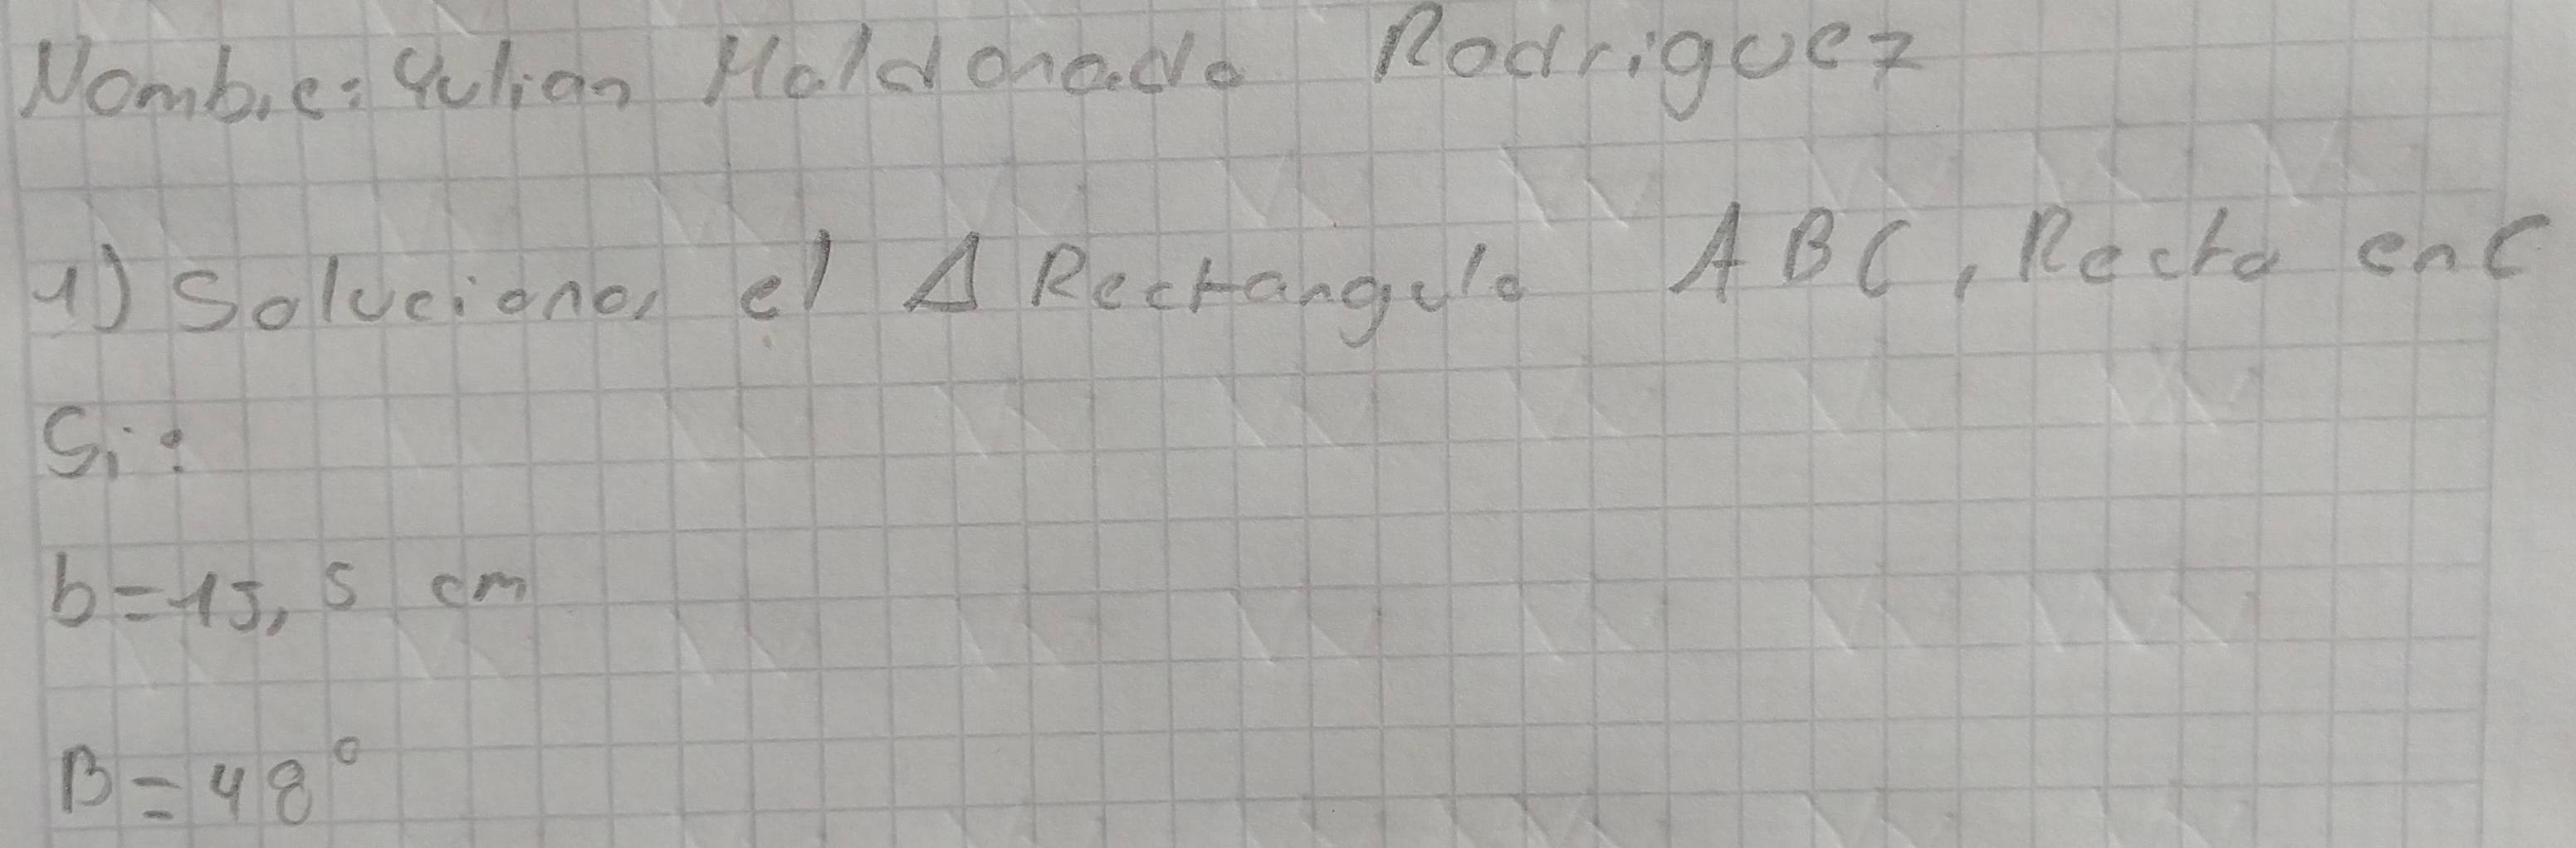 Nombre: Yulian Maldonado Rodriguez
1) Solucionar el Δ Rectangulo ABC, Recto en C
Si:
b=15,5 cm
B=48°